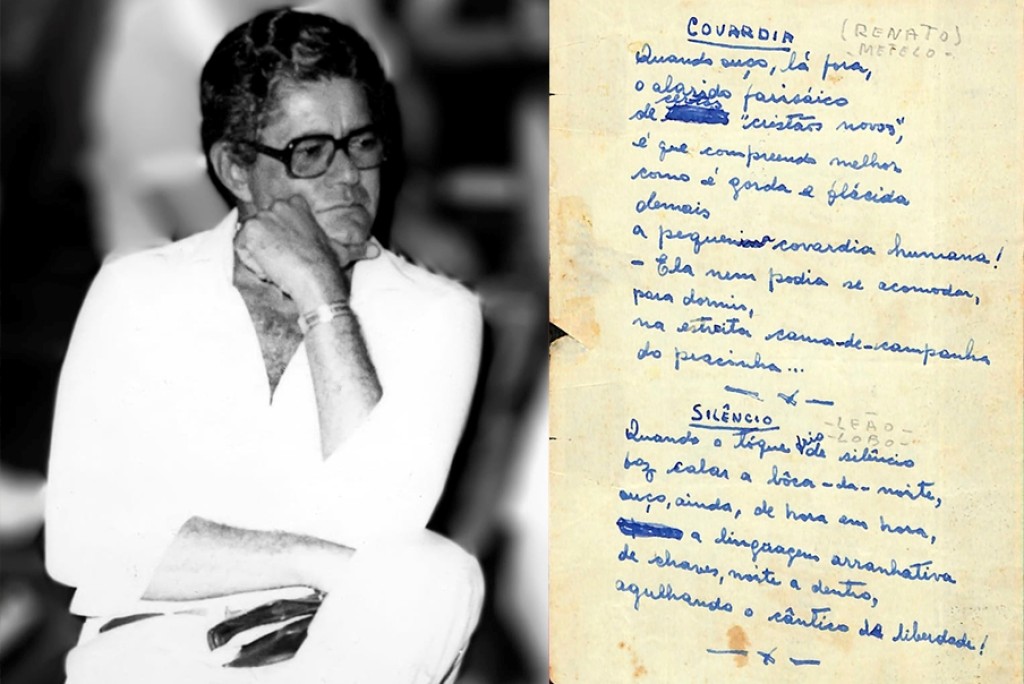 COVARDIA
(RENATO)
- METELO -
Quando ouço, lá fora,
o alarido farisáico
de certos "cristãos novos",
é que compreendo melhor
como é gorda e plácida
demais
a pequenina covardia humana!
- Ela nem podia se acomodar,
para dormir,
na estreita cama-de-campanha
do pracinha...
— x —
SILÊNCIO
- LEÃO -
- LOBO -
Quando o tóque de silêncio
faz calar a bôca-da-noite,
ouço, ainda, de hora em hora,
a linguagem arranhativa
de chaves, noite a dentro,
agulhando o cântico da liberdade!
— x —